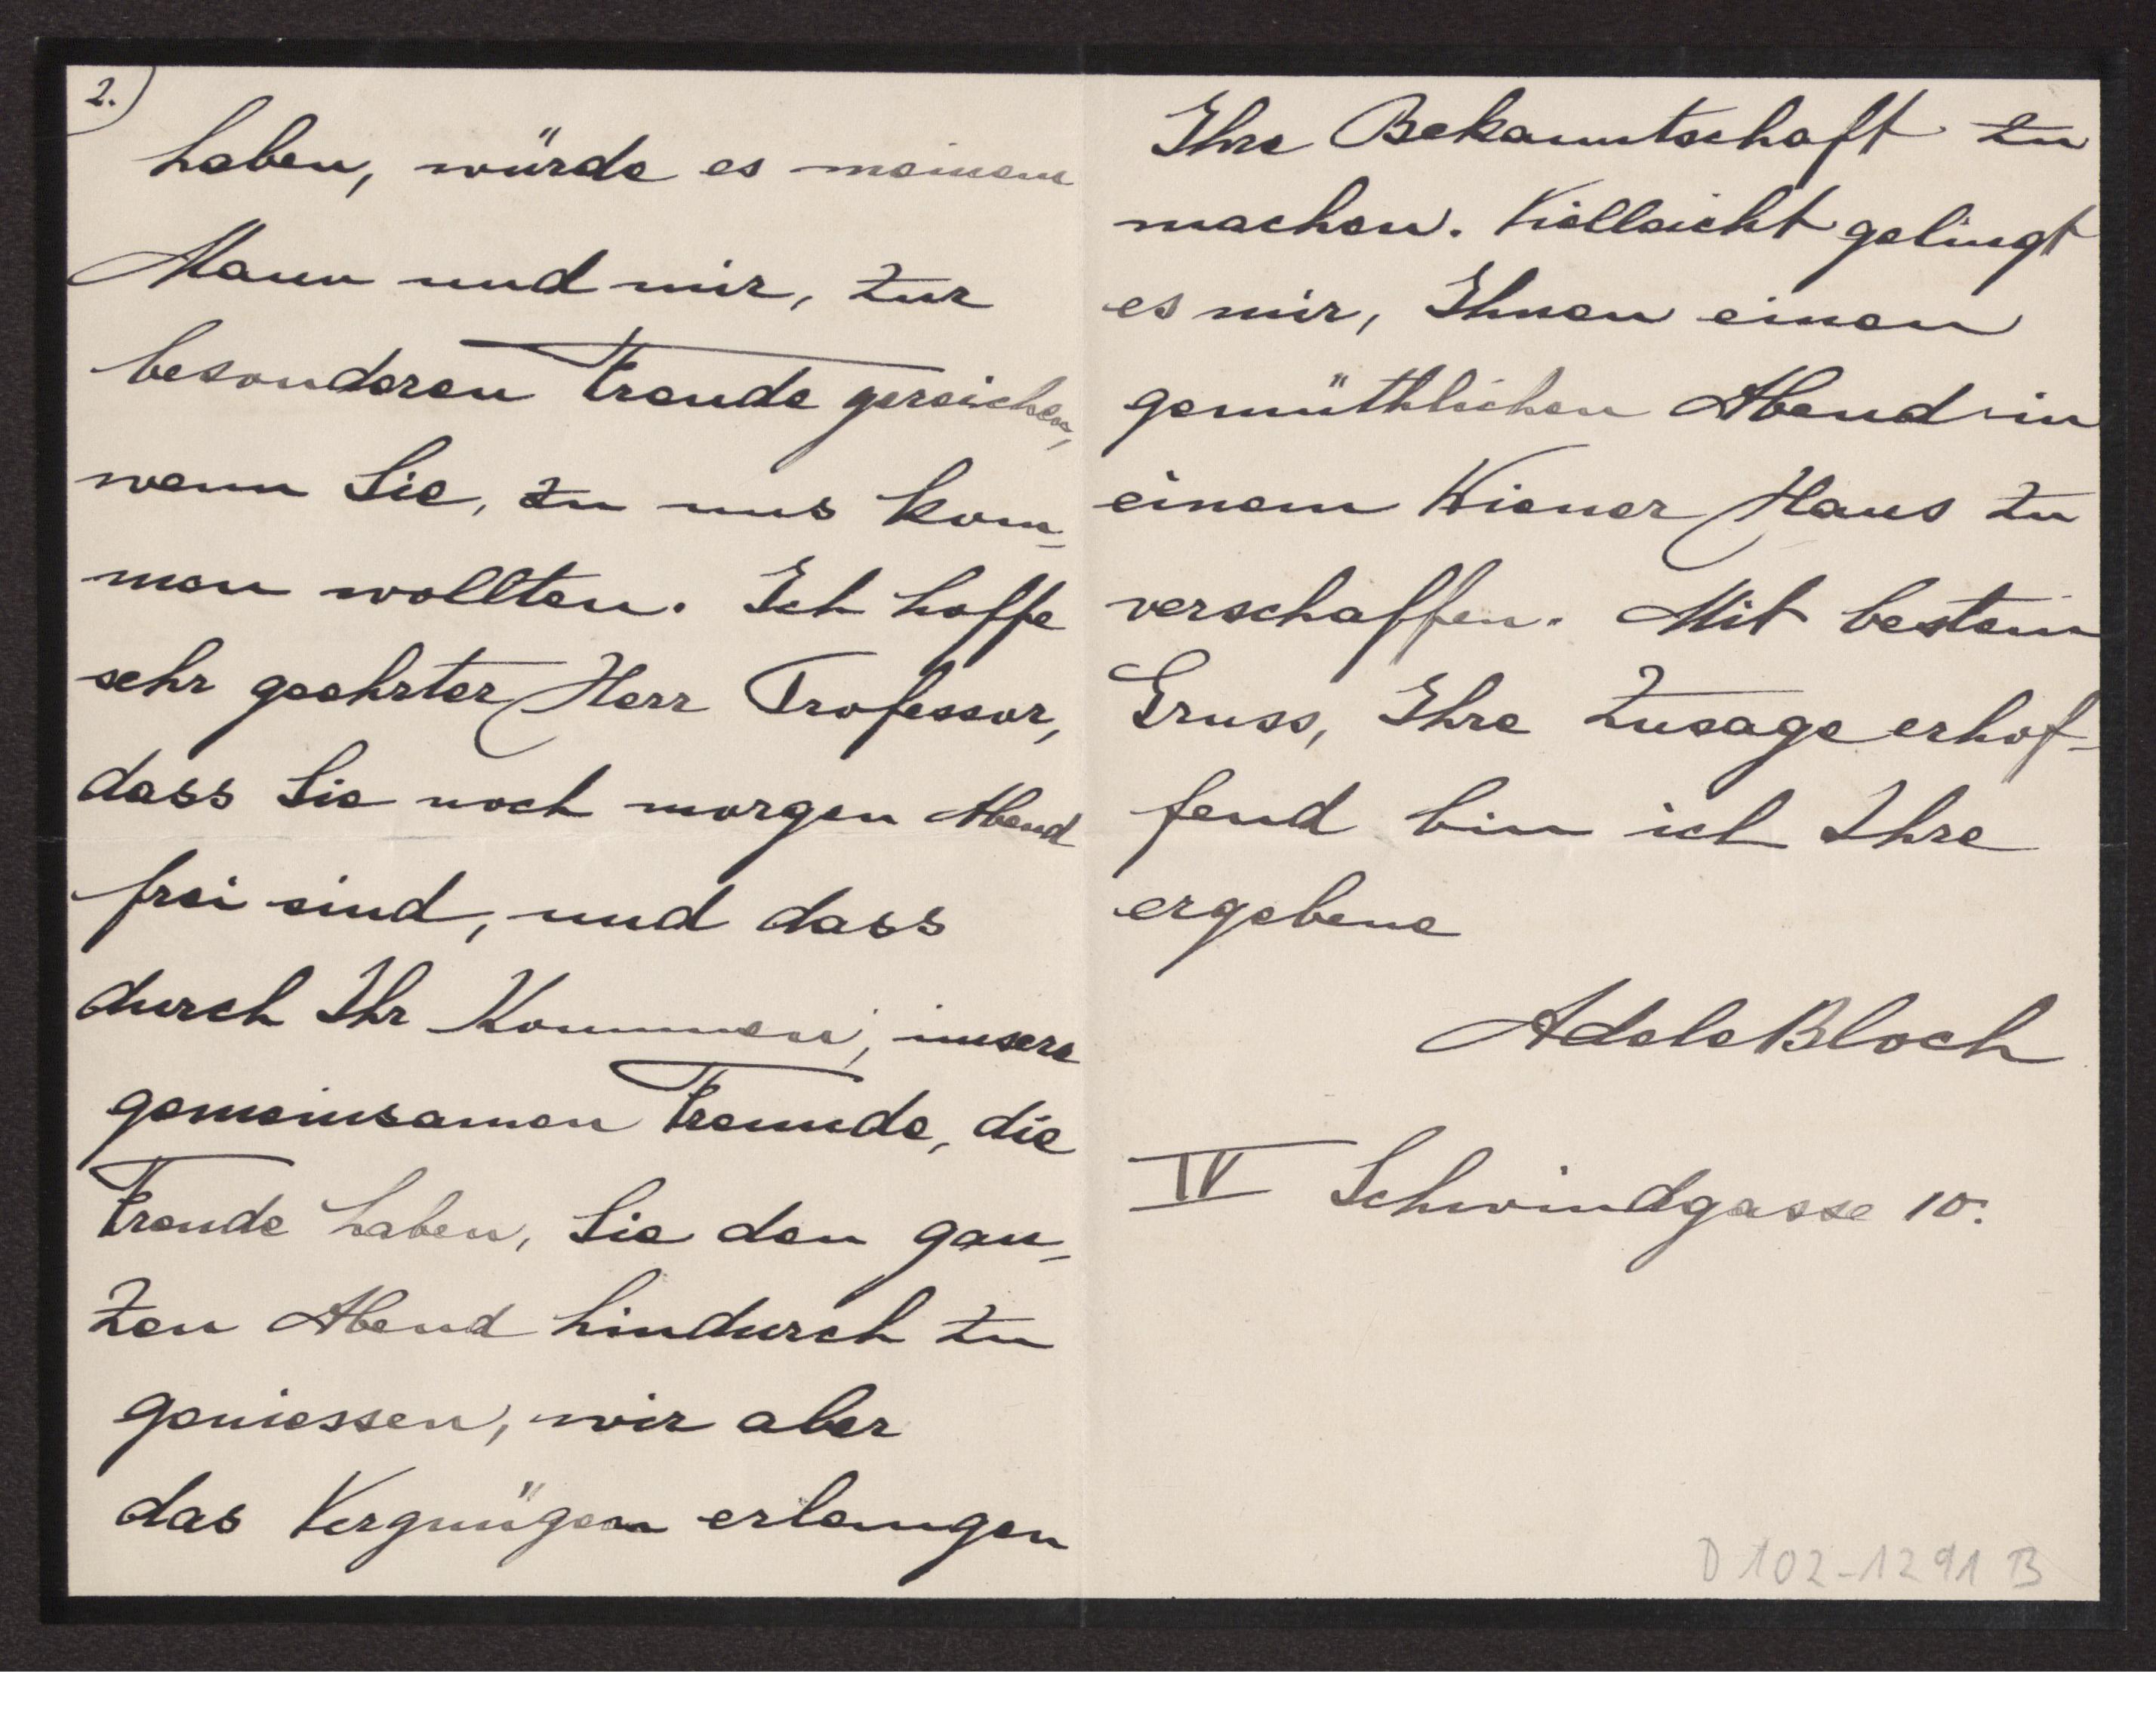 2.)
haben, würde es meinem
Mann und mir, zur
besonderen Freude gereichen,
wenn Sie, zu uns kom-
men wollten. Ich hoffe
sehr geehrter Herr Professor,
dass Sie noch morgen Abend
frei sind, und dass
durch Ihr Kommen, unsere
gemeinsamen Freunde, die
Freude haben, Sie den gan-
zen Abend hindurch zu
geniessen, wir aber
das Vergnügen erlangen
Ihre Bekanntschaft zu
machen. Vielleicht gelingt
es mir, Ihnen einen
gemüthlichen Abend in
einem Wiener Haus zu
verschaffen. Mit bestem
Gruss, Ihre Zusage erhof-
fend bin ich Ihre
ergebene
Adele Bloch
IV Schwindgasse 10.
D 102-1291 B